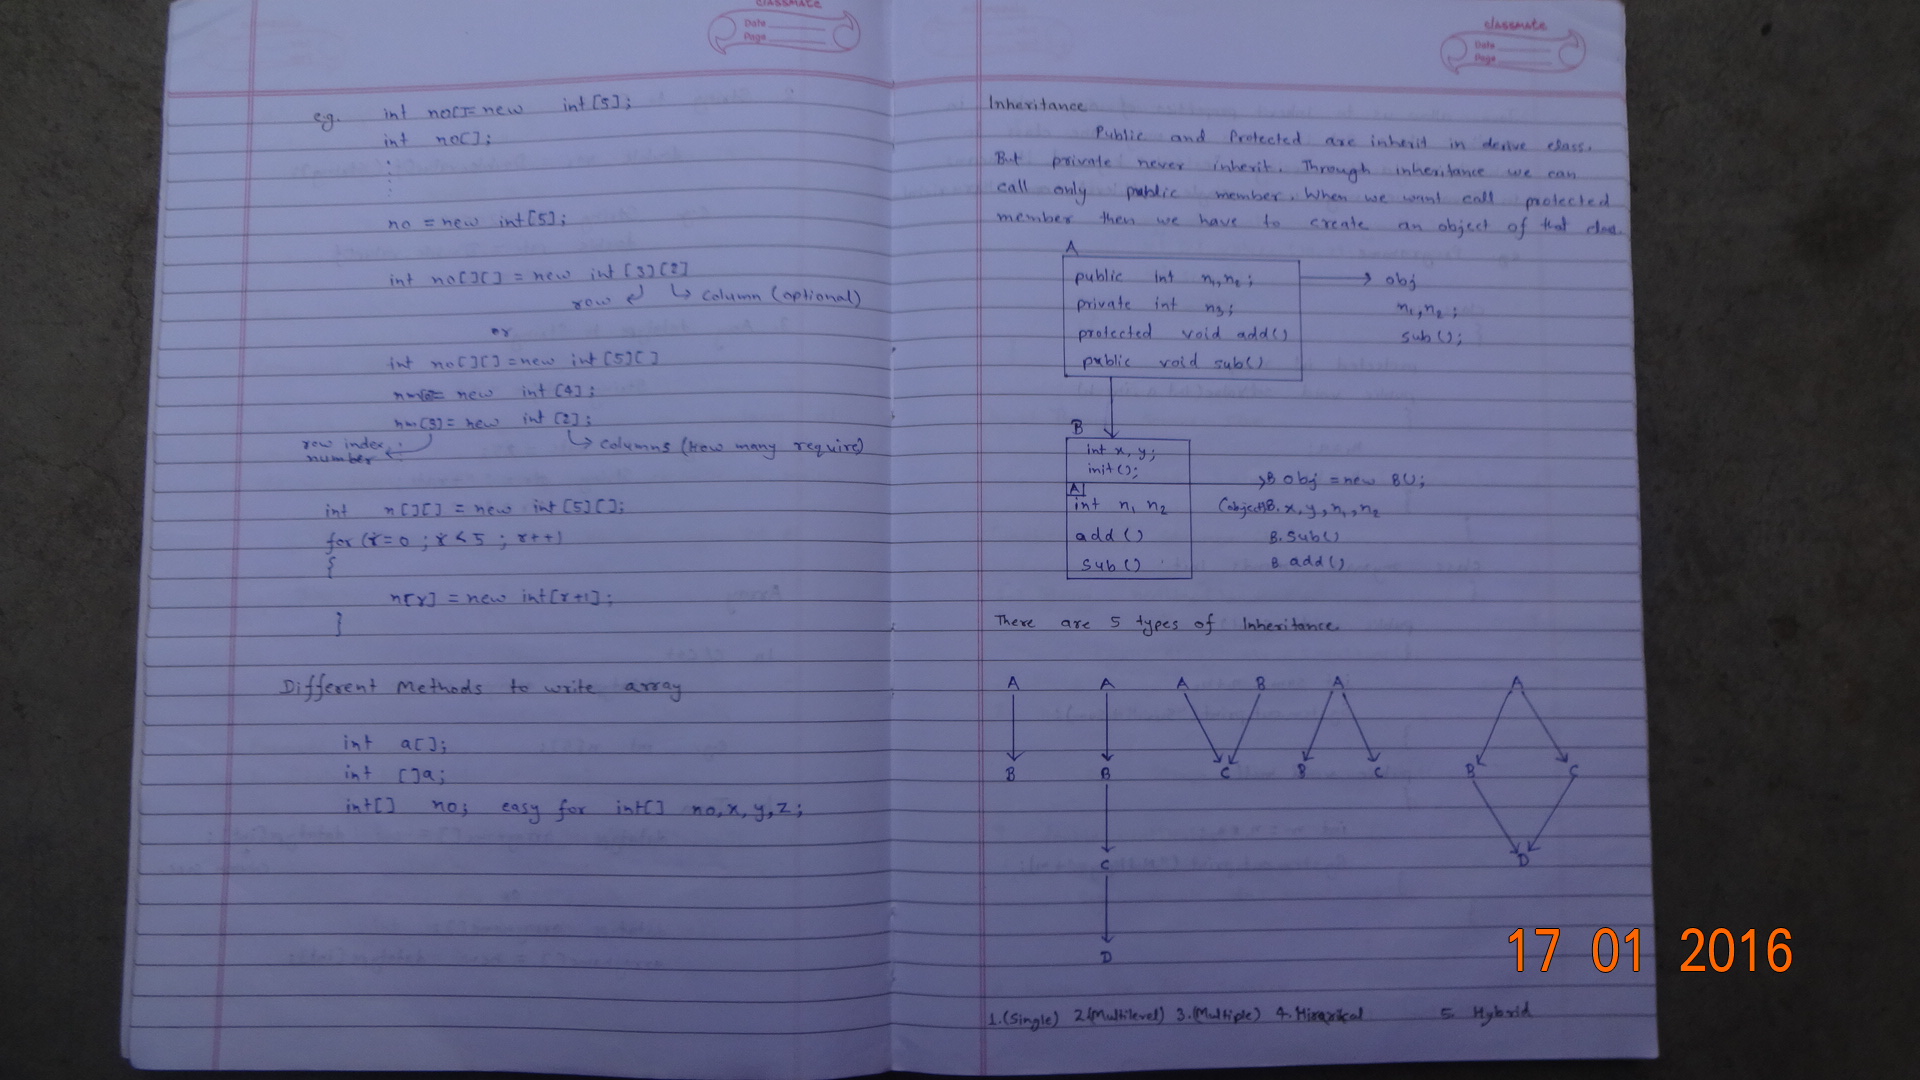 classmate
Date
Page
e.g. int no[]=new int[5];
int no[];
no = new int[5];
int no[][] = new int [3][2]
row column (optional)
or
int no[][]=new int[5][]
= new int [4];
nm[3]= new int [2];
row index number
columns (How many require)
int n[][] = new int[5][];
for (r=0 ; r<5 ; r++)
{
n[r] = new int[r+1];
}
Different Methods to write array
int a[];
int []a;
int[] no; easy for int[] no,x,y,z;
classmate
Date
Page
Inheritance
Public and Protected are inherit in derive class.
But private never inherit. Through inheritance we can
call only public member. When we want call protected
member then we have to create an object of that class.
A
public int n₁,n₂; → obj
private int n3; n₁,n₂;
protected void add() sub();
public void sub()
B
int x, y;
init();
B obj = new B();
A
int n₁ n₂ (object)B. x, y, n₁, n₂
add () B.sub()
sub () B. add()
There are 5 types of Inheritance.
A A A B A A
B B C B C B C
C D
D
1.(Single) 2(Multilevel) 3.(Multiple) 4. Hirarical 5. Hybrid
17 01 2016